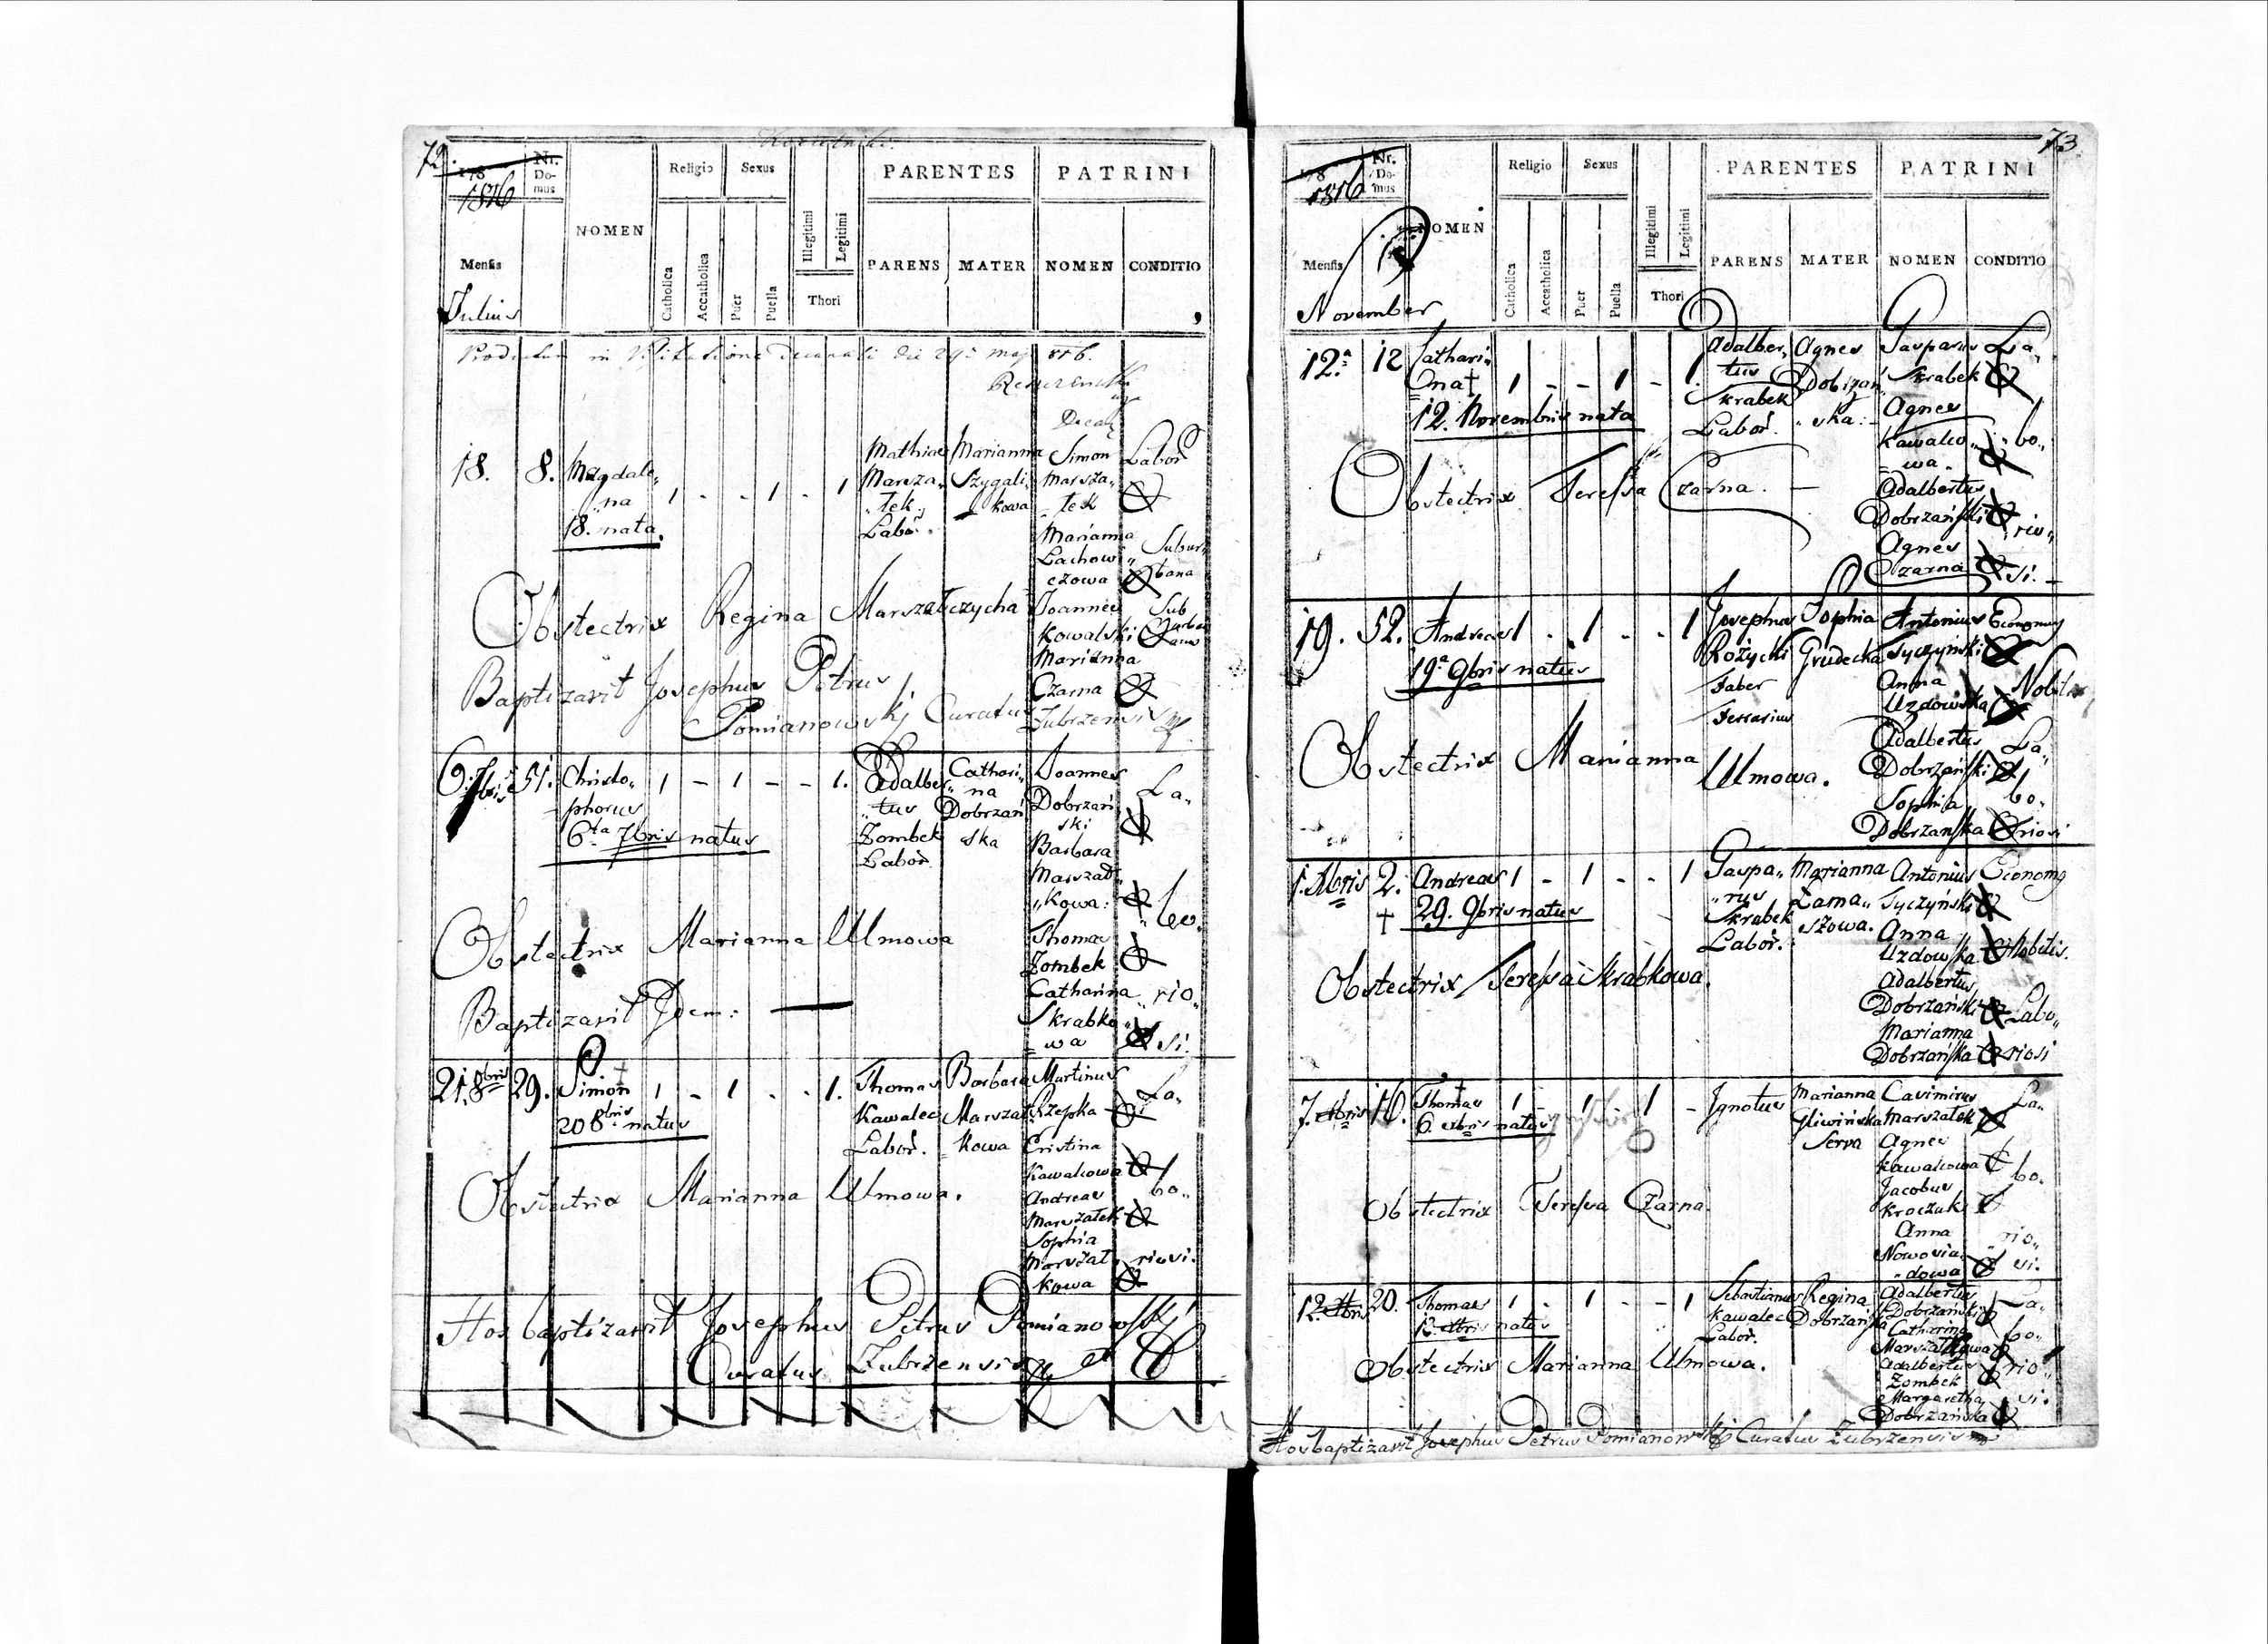 72.
178
1816
Nr.
Do-
mus
NOMEN
Religio
Sexus
PARENTES
PATRINI
Mensis
Catholica
Accatholica
Puer
Puella
Illegitimi
Legitimi
Thori
PARENS
MATER
NOMEN
CONDITIO
Julius
in Visitatione Decanali die 29
18. 8. Magdale„ 1 - - 1 - 1 Mathias Marianna Simon Labor
„na Marsza„ Szygali„ Marsza„
18. nata. „łek„ kowa „łek
Labor.
Marianna
Lachowi„ Subur„
czowa bana
Obstectrix Regina Marszałczycha Joannes Sub
Kowalski urba
nus
Marianna
Baptizavit Josephus Petrus Czarna
Pomianowskj Curatus Zubrzensis
6. 7bris 51. Christo„ 1 - 1 - - 1. Adalber„ Cathari„ Joannes La„
phorus „tus na Dobrzań
6ta 7bris natus Zombek Dobrzań ski
Labor. ska Barbara
Marszał„
„kowa: „bo„
Obstectrix Marianna Ulmowa Thomas
Zombek
Catharina „rio„
Baptizavit Idem: Skrabko„
wa si.
21. 8bris 29. Simon 1 - 1 - - 1. Thomas Barbara Martinus La„
20 8bris natus Kawalec Marszał Rzepka
Labor. kowa Cristina
Kawalcowa
Obstectrix Marianna Ulmowa. Andreas bo„
Marszałek
Sophia
Marszał„ riosi.
kowa
Hos baptizavit Josephus Petrus Pomianowskj
Curatus Zubrzensis
73
178
1816
Nr.
Do-
mus
NOMEN
Religio
Sexus
PARENTES
PATRINI
Mensis
Catholica
Accatholica
Puer
Puella
Illegitimi
Legitimi
Thori
PARENS
MATER
NOMEN
CONDITIO
November
12.a 12 Cathari„ 1 - - 1 - 1. Adalber„ Agnes Gasparus La„
na† tus Dobrzań„ Skrabek
12. Novembris nata Skrabek ska: Agnes
Labor. Kawalco„ „bo„
wa„
Obstectrix Teressa Czarna. Adalbertus
Dobrzański „rio„
Agnes
Czarna si.
19. 52. Andreas 1 - 1 - - 1 Josephus Sophia Antonius Economus
19a 9bris natus Rożycki Grudecka Tyczyński
Faber Anna Nobiles
Ferrarius Uzdowska
Obstectrix Marianna Ulmowa. Adalbertus La„
Dobrzański
Sophia bo„
Dobrzańska riosi
1. Xbris 2. Andreas 1 - 1 - - 1 Gaspa„ Marianna Antonius Economg
† 29. 9bris natus „rus Łama„ Tyczyński
Skrabek szowa. Anna
Labor. Uzdowska Nobilis.
Obstectrix Teressa Skrabkowa. Adalbertus
Dobrzański Labo„
Marianna
Dobrzańska riosi
7. Xbris 16. Thomas 1 - 1 - 1 - Ignotus Marianna Casimirus La„
6. Xbris natus Gliwińska Marszałek
Serva Agnes
Kawalcowa bo„
Obstectrix Teressa Czarna. Jacobus
Kroczuk
Anna rio„
Nowosia„
„dowa si.
12. Xbris 20. Thomas 1 - 1 - - 1 Sebastianus Regina Adalbertus La„
12. Xbris natus Kawalec Dobrzańska Dobrzański
Labor. Catharina bo„
Obstectrix Marianna Ulmowa. Marszałkowa
Adalbertus rio„
Zombek
Margaretha si.
Dobrzańska
Hos baptizavit Josephus Petrus Pomianowskj Curatus Zubrzensis